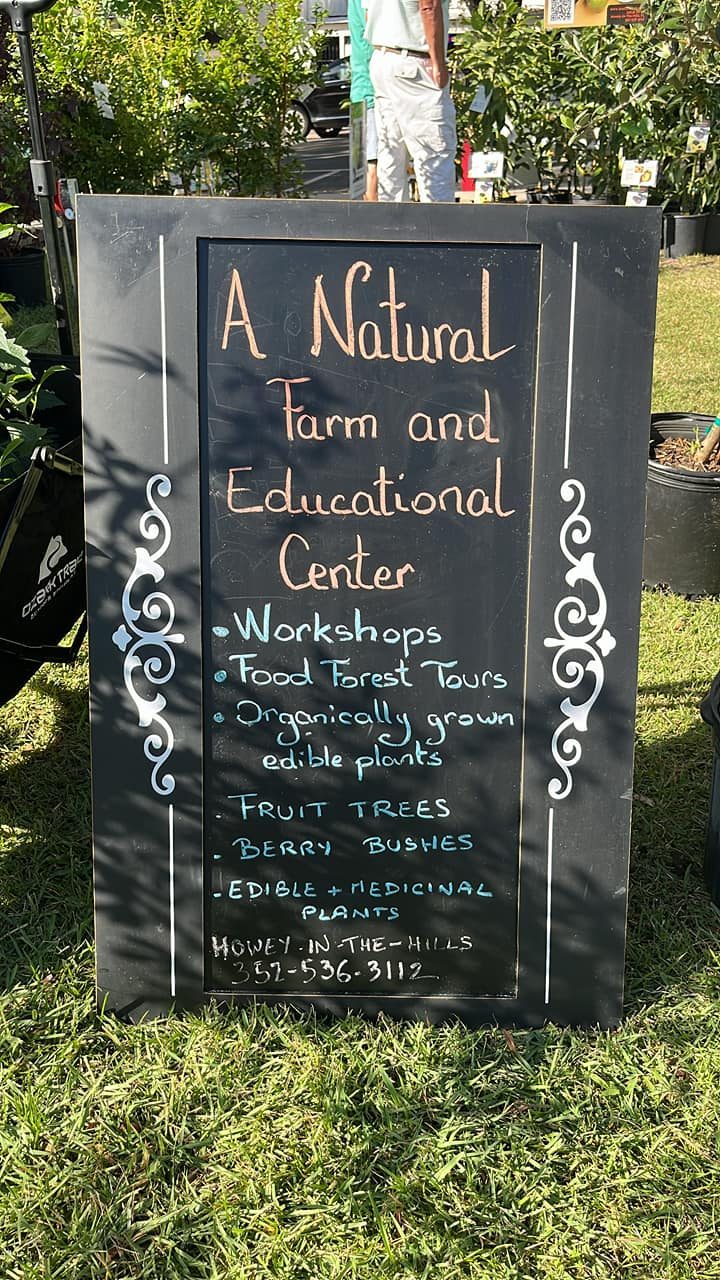 A Natural
Farm and
Educational
Center
• Workshops
• Food Forest Tours
• Organically grown
edible plants
. FRUIT TREES
. BERRY BUSHES
- EDIBLE + MEDICINAL
PLANTS
HOWEY-IN-THE-HILLS
352-536-3112
OZARK TRAIL